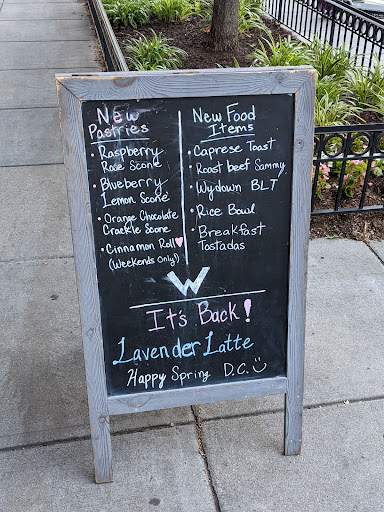 New
Pastries
• Raspberry
Rose Scone
• Blueberry
Lemon Scone
• Orange Chocolate
Crackle Scone
• Cinnamon Roll
(Weekends Only!)
New Food
Items
• Caprese Toast
• Roast beef Sammy
• Wydown BLT
• Rice Bowl
• Breakfast
Tostadas
W
It's Back!
Lavender Latte
Happy Spring D.C.